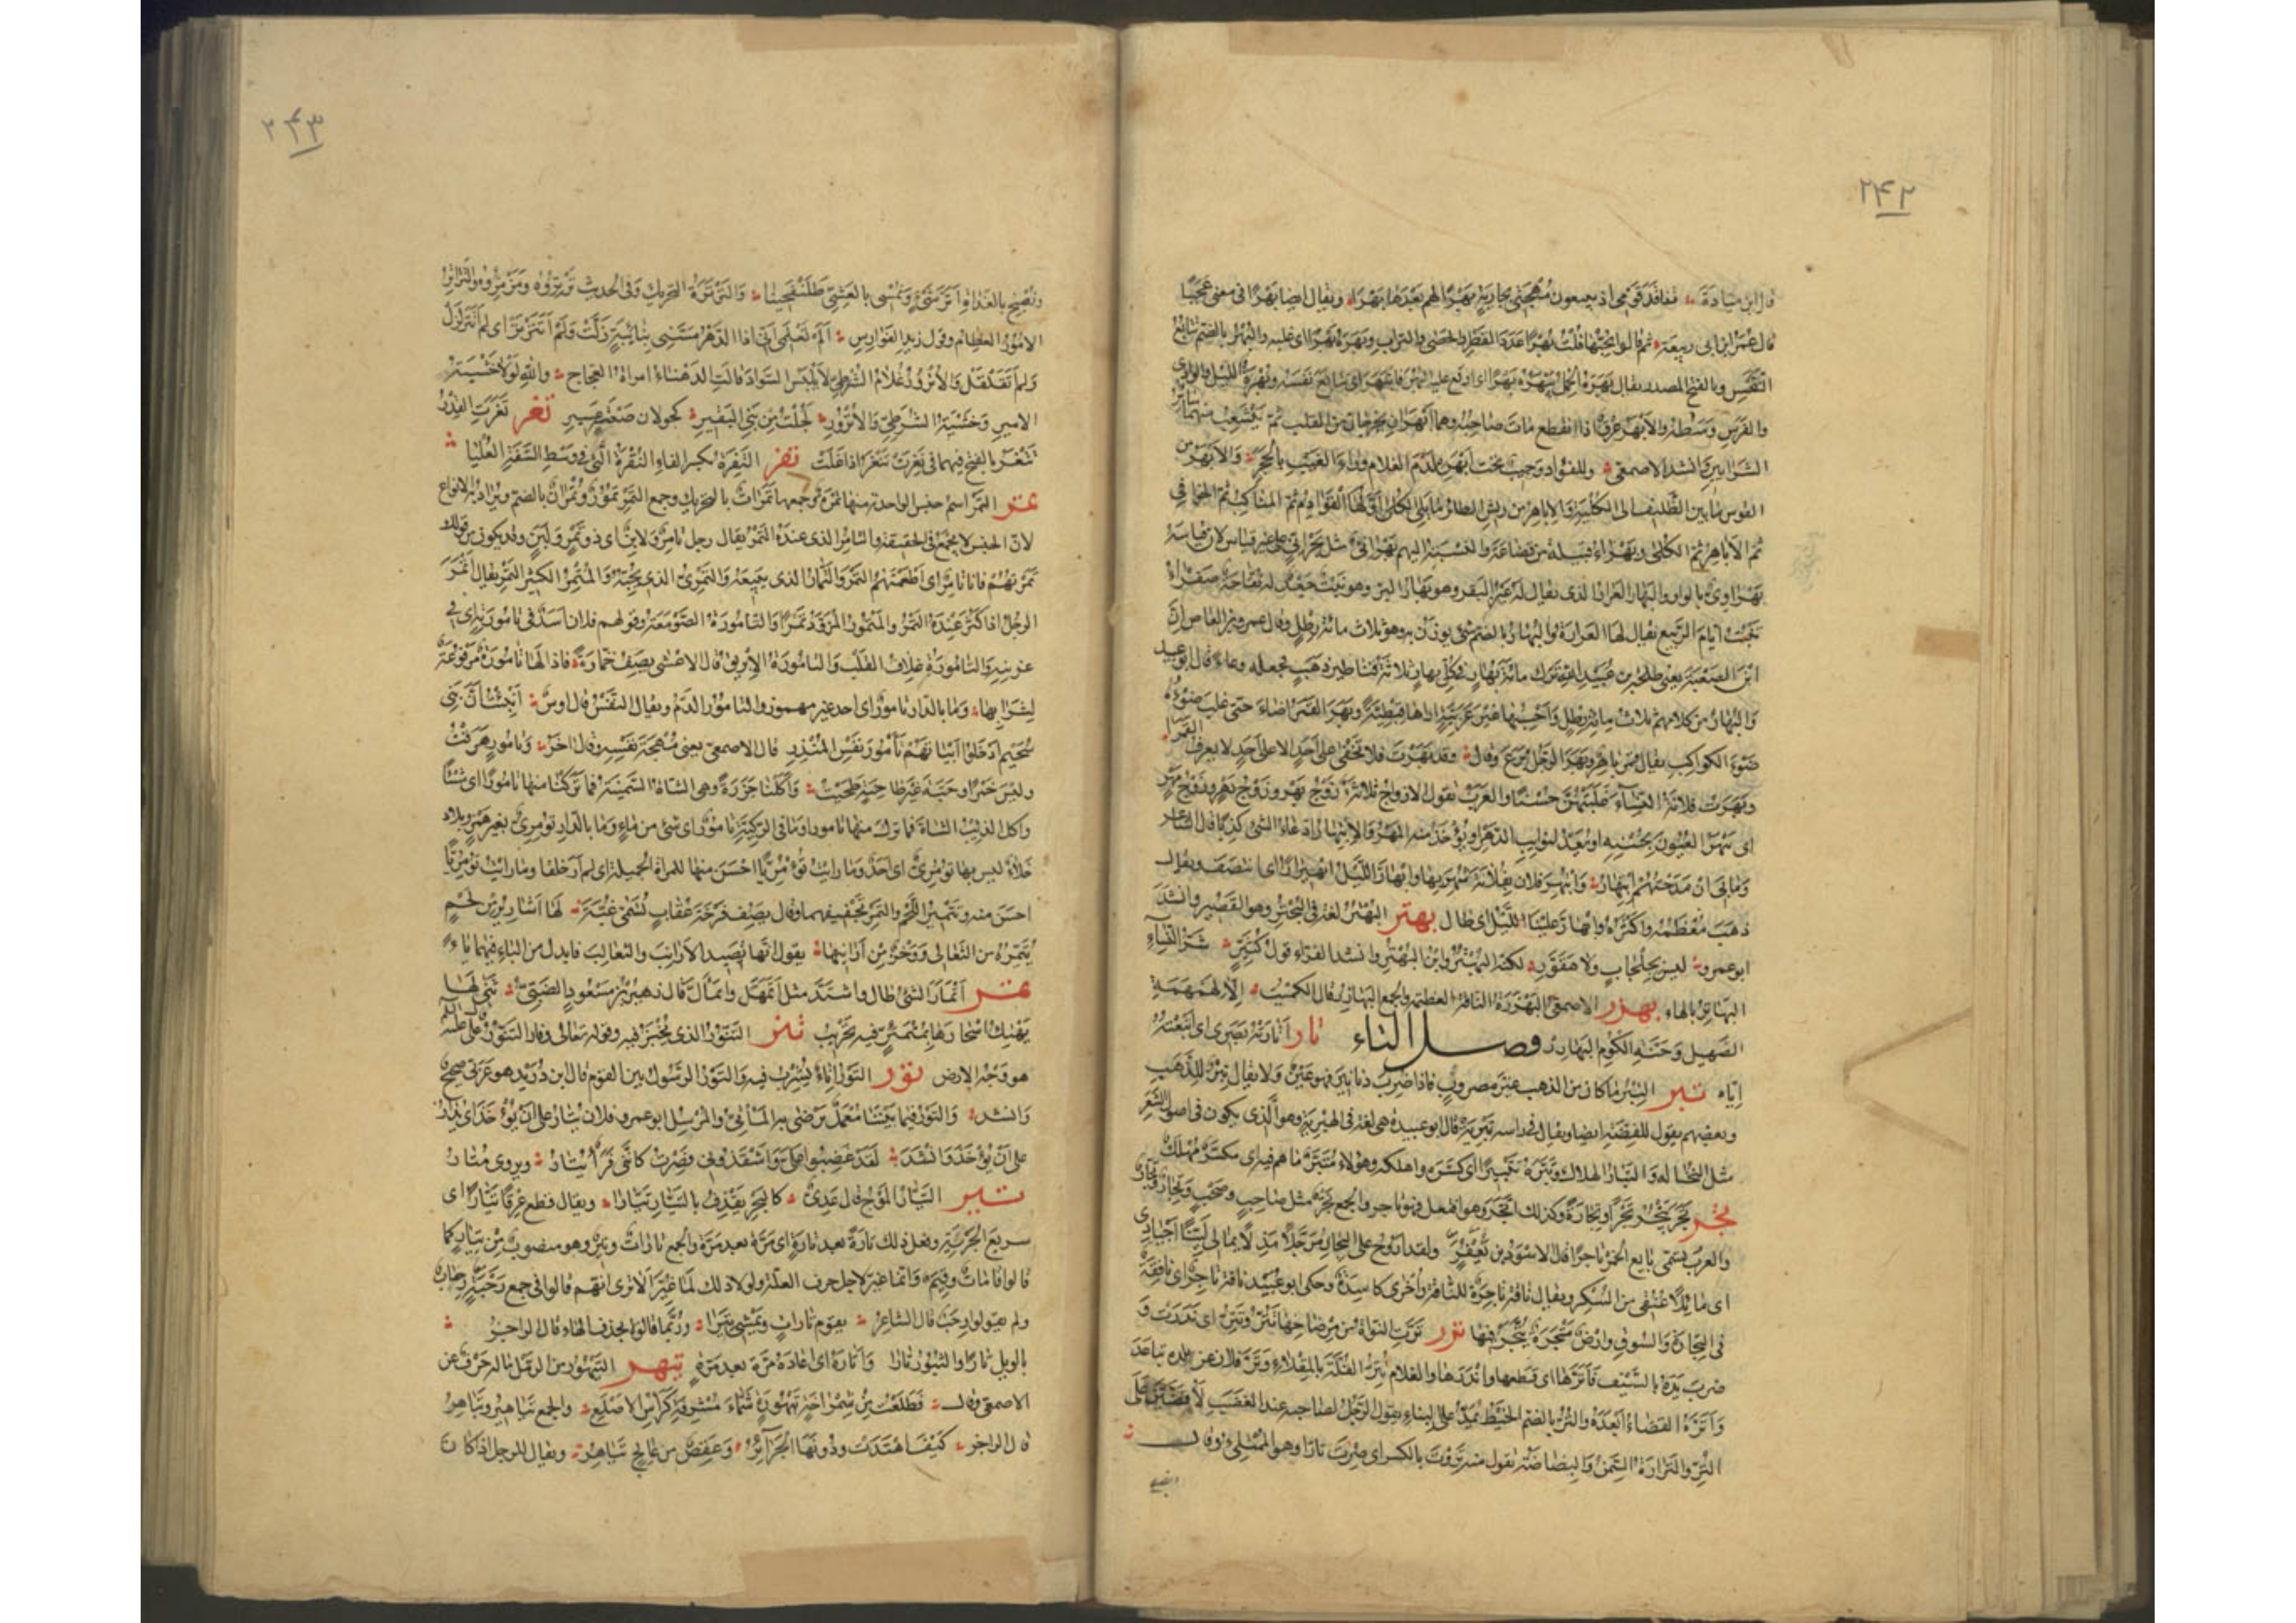 ٢۴٢
قال ابن ميادة تفاقد قومي اذ يبيعون مهجتي بجارية بهرا لهم بعدها بهرا ويقال ايضا بهرا في معنى عجبا
قال عمر ابن ابي ربيعة ثم قالوا تحبها قلت بهرا عدد القطر والحصى والتراب وبهره بهرا اى غلبه والبهر بالضم تتابع
النفس وبالفتح المصدر يقال بهره الحمل يبهره بهرا اى اوقع عليه البهر فانبهر اى تتابع نفسه وبهرة الليل والوادى
والفرس وسطه والابهر عرق اذا انقطع مات صاحبه وهما ابهران يخرجان من القلب ثم يتشعب منهما سائر
الشرايين وانشد الاصمعى وللفؤاد وجيب تحت ابهره لدم الغلام وراء الغيب بالحجر والابهر من
القوس ما بين الطايف الى الكلية والاباهر من ريش الطائر ما يلى الكلى اولها القوادم ثم المناكب ثم الخوافي
ثم الاباهر ثم الكلى وبهراء قبيلة من قضاعة والنسبة اليهم بهرانى مثل بحرانى على غير قياس لان قياسه
بهراوى بالواو والبهار العرار الذى يقال له عين البقر وهو بهار البر وهو نبت جعد له فقاحة صفراء
تنبت ايام الربيع يقال لها العرارة والبهار بالضم شئ يوزن به وهو ثلاث مائة رطل وقال عمرو بن العاص ان
ابن الصعبة يعنى طلحة بن عبيد الله ترك مائة بهار فى كل بهار ثلاثة قناطير ذهب فجعله وعاء قال ابو عبيد
والبهار من كلامهم ثلاث مائة رطل واحسبها غير عربية اراها قبطية وبهر القمر اضاء حتى غلب ضوؤه
ضوء الكواكب يقال قمر باهر وبهر الرجل برع وقال وقد بهرت فلا تخفى على احد الا على احد لا يعرف القمرا
وبهرت فلانة النساء غلبتهن حسنا والعرب تقول الازواج ثلاثة زوج بهر وزوج دهر وزوج مهر
اى يبهر العيون بحسنه او يعد لنوايب الدهر او يؤخذ منه المهر والابتهار ادعاء الشئ كذبا قال الشاعر
وما بى ان مدحتهم ابتهار وابتهر فلان بفلانة شهر بها وابهار الليل ابهيرارا اى انتصف ويقال
ذهب معظمه واكثره وابهار علينا الليل اى طال بهتر البهتر لغة فى البحتر وهو القصير وانشد
ابو عمرو ليس بجلحاب ولا هقور لكنه البهتر وابن البهتر وانشد الفراء قول كثير شر النساء
البهاتر بالهاء بهزر الاصمعى البهزرة الناقة العظيمة والجمع البهازر قال الكميت الا لهمهمة
الصهيل وحنة الكوم البهازر فصل التاء تار اتارته بصرى اى اتبعته
اياه تبر التبر ما كان من الذهب غير مضروب فاذا ضرب دنانير فهو عين ولا يقال تبر الا للذهب
وبعضهم يقول للفضة ايضا ويقال فى راسه تبرية قال ابو عبيدة هى لغة فى الهبرية وهو الذى يكون فى اصول الشعر
مثل النخالة والتبار الهلاك وتبره تتبيرا اى كسره واهلكه وهؤلاء متبر ما هم فيه اى مكسر مهلك
تجر تجر يتجر تجرا وتجارة وكذلك اتجر وهو افتعل فهو تاجر والجمع تجر مثل صاحب وصحب وتجار وتجار
والعرب تسمى بايع الخمر تاجرا قال الاسود بن يعفر ولقد اروح على التجار مرجلا مذلا بمالى لينا اجيادى
اى مائلا عنقى من السكر ويقال ناقة تاجرة للنافقة واخرى كاسدة وحكى ابو عبيد ناقة تاجر اى نافقة
فى التجارة والسوق وارض متجرة يتجر فيها ترر ترت النواة من مرضاخها تتر وتتر اى ندرت و
ضرب يده بالسيف فاترها اى قطعها واندرها والغلام يتر القلة بالمقلاء وتر فلان عن بلده تباعد
واتره القضاء ابعده والتر بالضم الخيط يمد على البناء يقول الرجل لصاحبه عند الغضب لاقيمنك على
التر والترارة السمن والبضاضة تقول منه تررت بالكسر اى صرت تارا وهو الممتلئ وقال
ونصبح
٢۴٣
ونصبح بالغداة اتر شئ ونمسى بالعشى طلنفحينا والترترة التحريك وفى الحديث ترتروه ومزمزوه والتراتر
الامور العظام وقول زيد الفوارس الم تعلمى انى اذا الدهر مسنى بنائبة زلت ولم اتترتر اى لم اتزلزل
ولم اتقلقل والاترور غلام الشرطى لا يلبس السواد قالت الدهناء امراة العجاج والله لولا خشية
الامير وخشية الشرطى والاترور لجلت من بنى البقير كجولان صعبة عسير تغر تغرت القدر
تتغر بالفتح فيهما فى نغرت تنغر اذا غلت تفر التفرة بكسر الفاء النقرة التى فى وسط الشفة العليا
تمر التمر اسم جنس الواحدة منها تمرة وجمعها تمرات بالتحريك وجمع التمر تمور وتمران بالضم ويراد به الانواع
لان الجنس لا يجمع فى الحقيقة والتامر الذى عنده التمر يقال رجل تامر ولابن اى ذو تمر ولبن وقد يكون من قولك
تمرتهم فانا تامر اى اطعمتهم التمر والتمار الذى يبيعه والتمرى الذى يحبه والمتمر الكثير التمر يقال اتمر
الرجل اذا كثر عنده التمر والمتمور المزود تمرا والتامورة الصومعة وقولهم فلان اسد فى تامورته اى فى
عرينه والتامورة غلاف القلب والتامورة الابريق قال الاعشى يصف خمارة فاذا لها تامورة مرفوعة
لشرابها وما بالدار تامور اى احد غير مهموز والتامور الدم ويقال النفس قال اوس انبئت ان بنى
سحيم ادخلوا ابياتهم تامور نفس المنذر قال الاصمعى يعنى مهجة نفسه وقال اخر وتامور هرقت
وليس خمرا وحبة غير طاحية طحنت واكلنا جزرة وهى الشاة السمينة فما تركنا منها تامورا اى شئا
واكل الذئب الشاة فما ترك منها تامورا وما فى الركية تامور اى شئ من ماء وما بالدار تومرى بغير همز وبلاد
خلاء ليس بها تومرى اى احد وما رايت تومريا احسن منها للمراة الجميلة اى لم ار خلقا وما رايت تومريا
احسن منه وتتمير اللحم والتمر تجفيفهما وقال يصف فرخة عقاب تسمى غبة لها اشارير من لحم
تتمره من الثعالى ووخز من ارانيها يقول انها تصيد الارانب والثعالب فابدل من الباء فيهما ياء
تمئر اتمار الشئ طال واشتد مثل اتمهل واتمال قال زهير بن مسعود الضبى ثنى لها
يهتك اسحارها بمتمئر فيه تحزيب تنر التنور الذى يخبز فيه وقوله تعالى وفار التنور قال على عليه السلم
هو وجه الارض تور التور اناء يشرب فيه والتور الرسول بين القوم قال ابن دريد هو عربى صحيح
وانشد والتور فيما بيننا معمل يرضى به الماتى والمرسل ابو عمرو فلان يتار على ان يؤخذ اى يدار
على ان يؤخذ وانشد لقد غضبوا على واشقذونى فصرت كاننى فرا يتار ويروى متار
تير التيار الموج قال عدى كالبحر يقذف بالتيار تيارا ويقال قطع عرقا تيارا اى
سريع الجرية وفعل ذلك تارة بعد تارة اى مرة بعد مرة والجمع تارات وتير وهو مقصور من تيار كما
قالوا قامات وقيم وانما غير لاجل حرف العلة ولولا ذلك لما غير الا ترى انهم قالوا فى جمع رحبة رحاب
ولم يقولوا رحب قال الشاعر يقوم تارات ويمشى تيرا وربما قالوا بحذف الهاء قال الراجز
بالويل تارا والثبور تارا واتاره اى اعاده مرة بعد مرة تيهر التيهور من الرمل ما له جرف عن
الاصمعى وقال فطلعت من شمراخه تيهورة شماء مشرفة كراس الاصلع والجمع تياهير وتياهر
قال الراجز كيف اهتدت ودونها الجزائر وعقص من عالج تياهر ويقال للرجل اذا كان